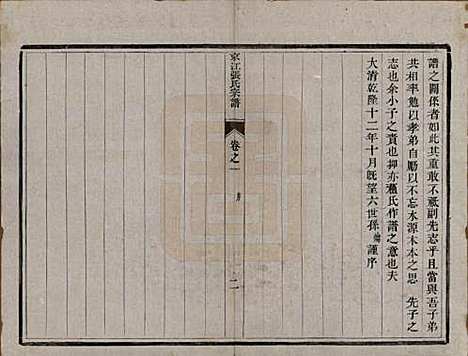 譜之關係者如此其重敢不祗副先志乎且當與吾子弟
共相率勉以孝弟自勵以不忘水源木本之思　先子之
志也余小子之責也抑亦蘓氏作譜之意也夫
大清乾隆十二年十月既望六世孫　謹序
京江張氏宗譜
卷之一
序
二